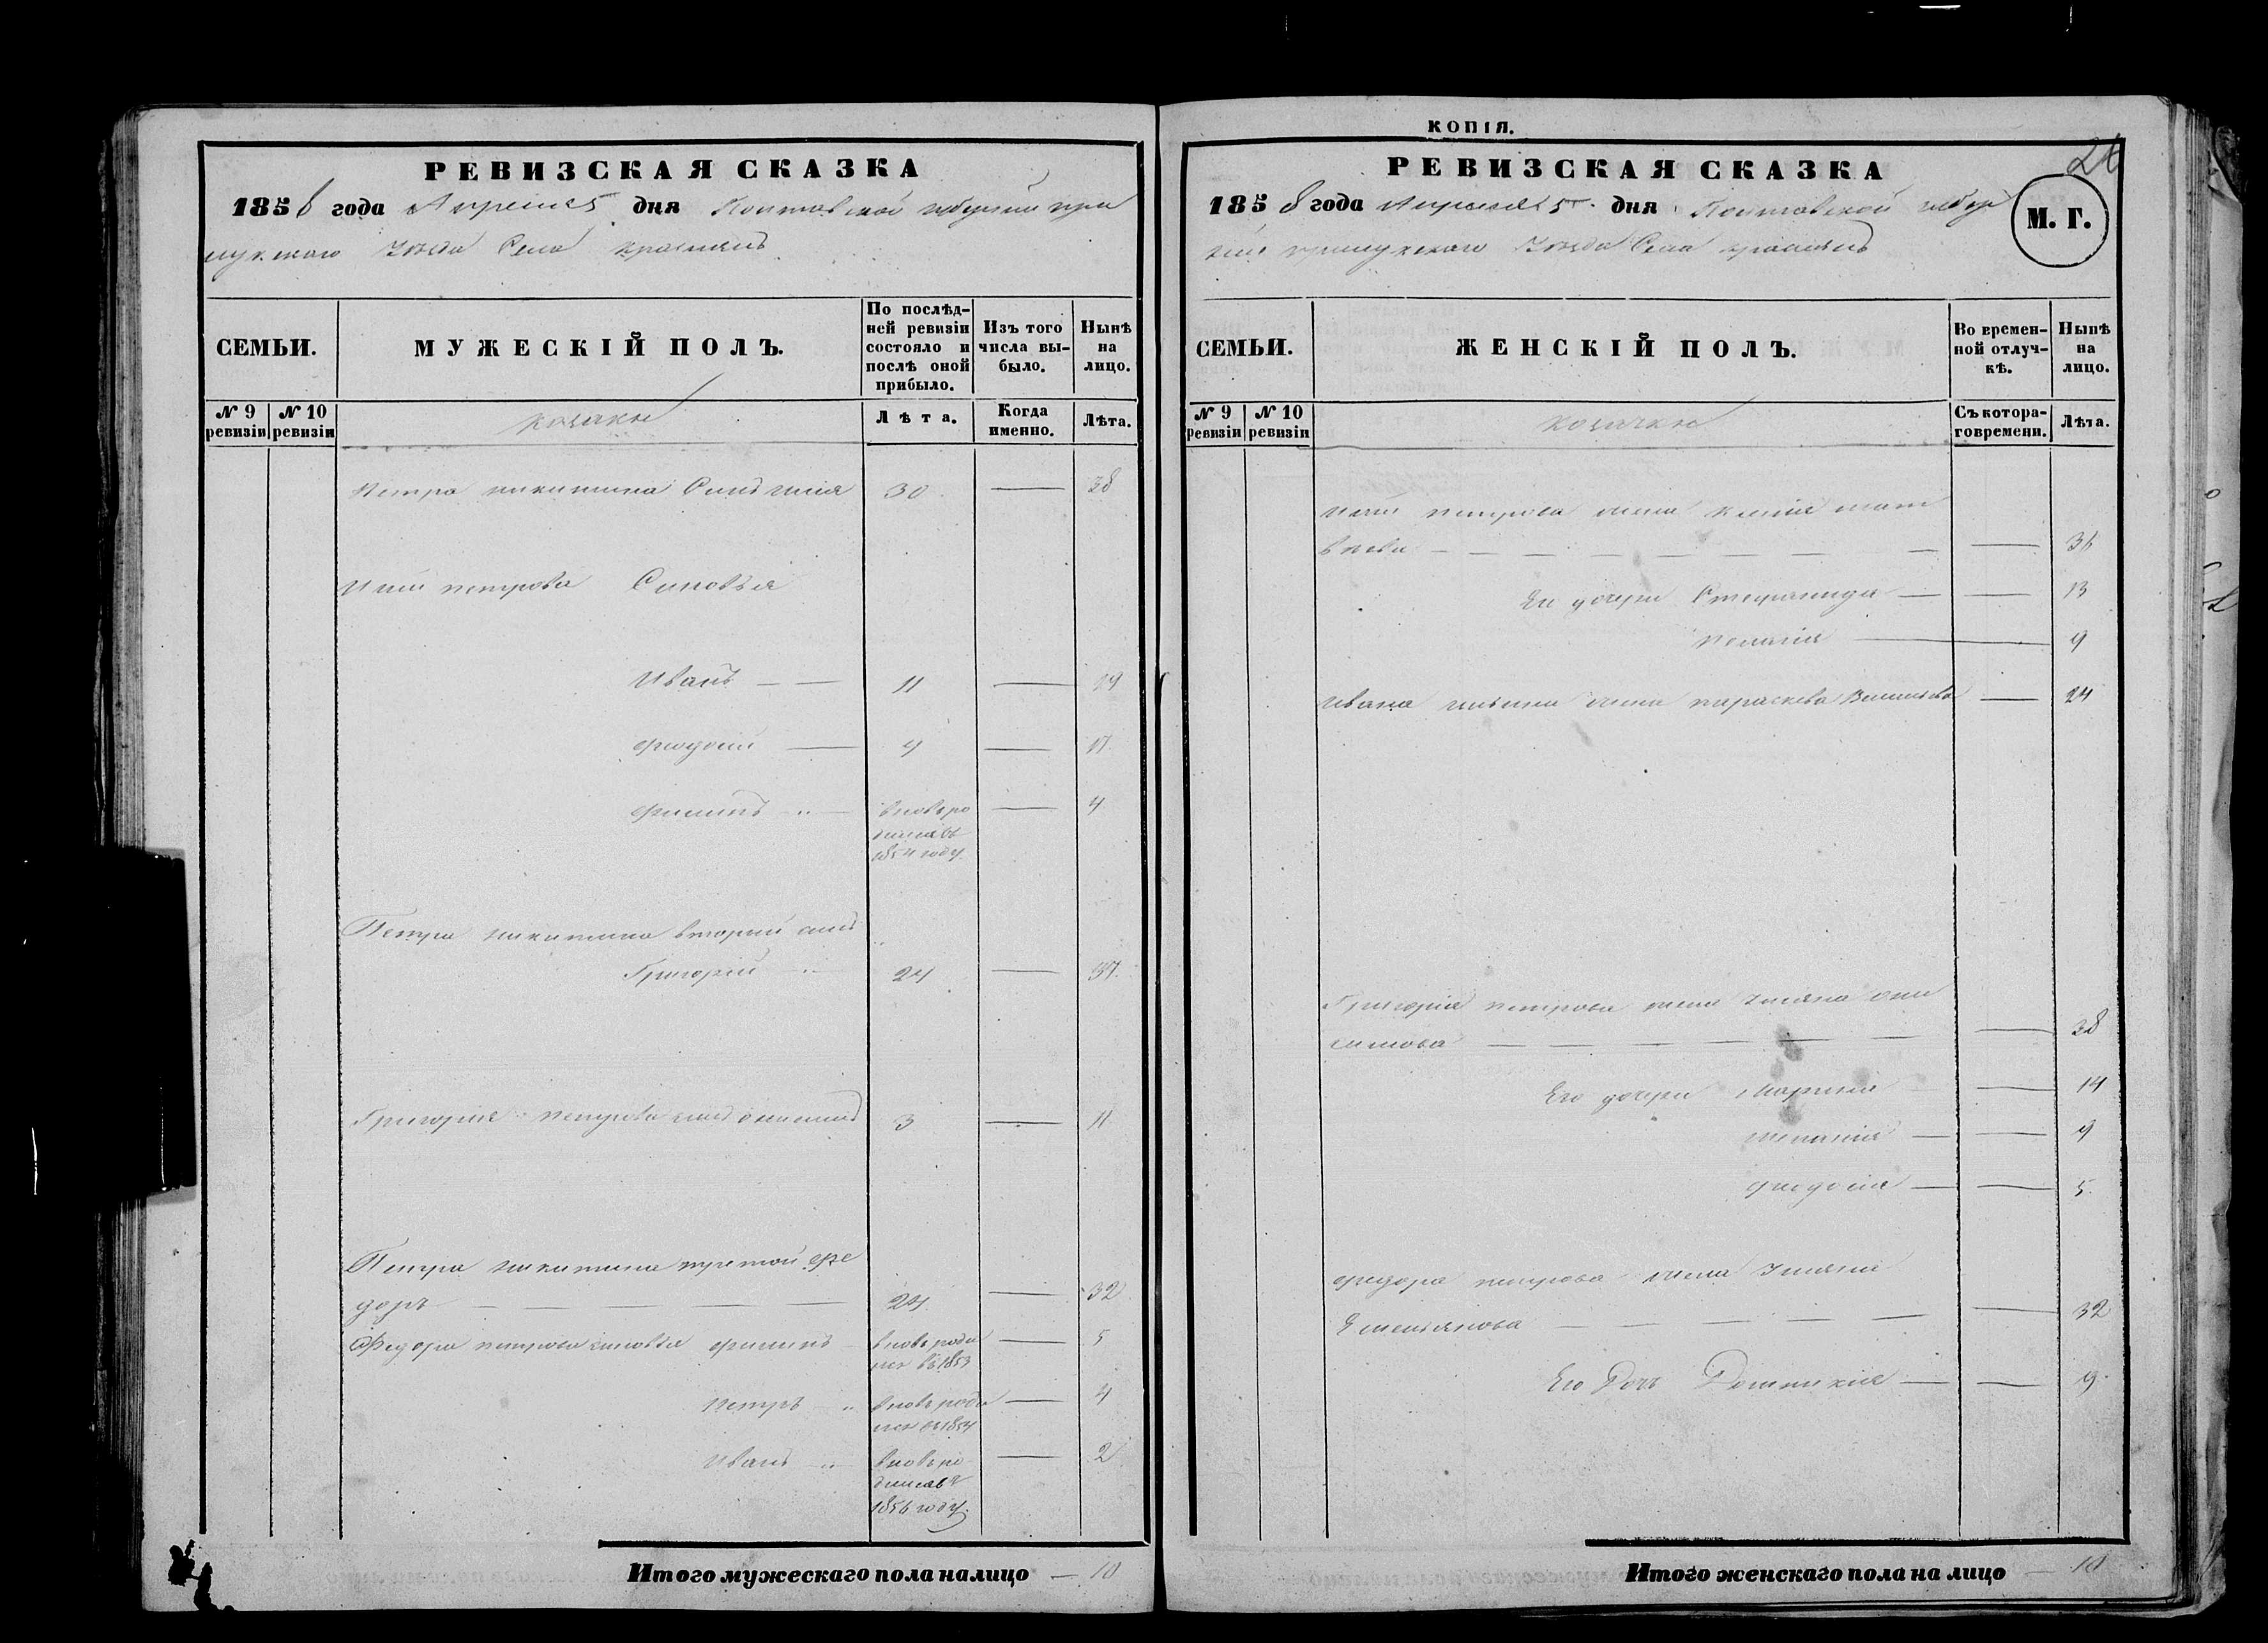 РЕВИЗСКАЯ СКАЗКА
1858 года Апреля 5 дня Полтавской губернии при
лукскаго Уезда Села
СЕМЬИ.
МУЖЕСКІЙ ПОЛЪ.
По послѣд-
ней ревизіи
состояло и
послѣ оной
прибыло.
Изъ того
числа вы-
было.
Нынѣ
на
лицо.
№ 9
ревизіи
№ 10
ревизіи
козаки
Лѣта.
Когда
именно.
Лѣта.
Петра никитина Синъ 30 — 38
петрова Синовья
Иванъ — — 11 — 19
феодосій — 9 — 17
филипъ „ — вновь ро — 4
дился въ
1854 году
Петра никитина вторий синъ
Григорій — 24 — 37
Григорія петрова синъ онисимъ 3 — 11
Петра никитина третой фе
доръ — — — — — 24 — 32
Федора петрова синовья филипъ вновь роди — 5
лся въ 1853
Петръ „ вновь роди — 4
лся въ 1854
Иванъ „ вновь ро — 2
дился въ
1856 году.
Итого мужескаго пола налицо — 10
КОПІЯ.
РЕВИЗСКАЯ СКАЗКА
1858 года Апреля 5 дня Полтавской губер
ніи прилукскаго Уезда Села
М. Г.
СЕМЬИ.
ЖЕНСКІЙ ПОЛЪ.
Во времен-
ной отлуч-
кѣ.
Нынѣ
на
лицо.
№ 9
ревизіи
№ 10
ревизіи
козачки
Съ котора-
го времени.
Лѣта.
петрова жена Ксенія мат
вѣева — — — — — — — — — 36
Его дочери Стефанида — — 13
пелагія — 9
Ивана жена параскева — 24
Григорія петрова жена Уляна они
симова — — — — — — — — 38
Его дочери Марина — 14
— — 9
феодосія — — 5
федора петрова жена Уляна
Емельянова — — — — — — — 32
Его Дочь Домникія — — 9
Итого женскаго пола на лицо — 10